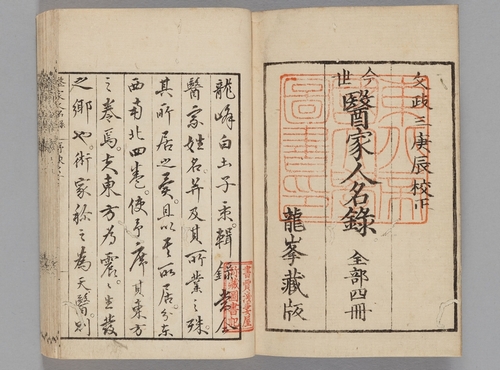 文政三庚辰校正
今世醫家人名錄 全部四冊
龍峯藏版
龍峰白土子 輯錄當今
醫家姓名并及其所業之殊
其所居之 且以其所居分東
西南北四卷使予序其東方
之卷焉夫東方為震々生發
之鄉也術家於之為天醫則